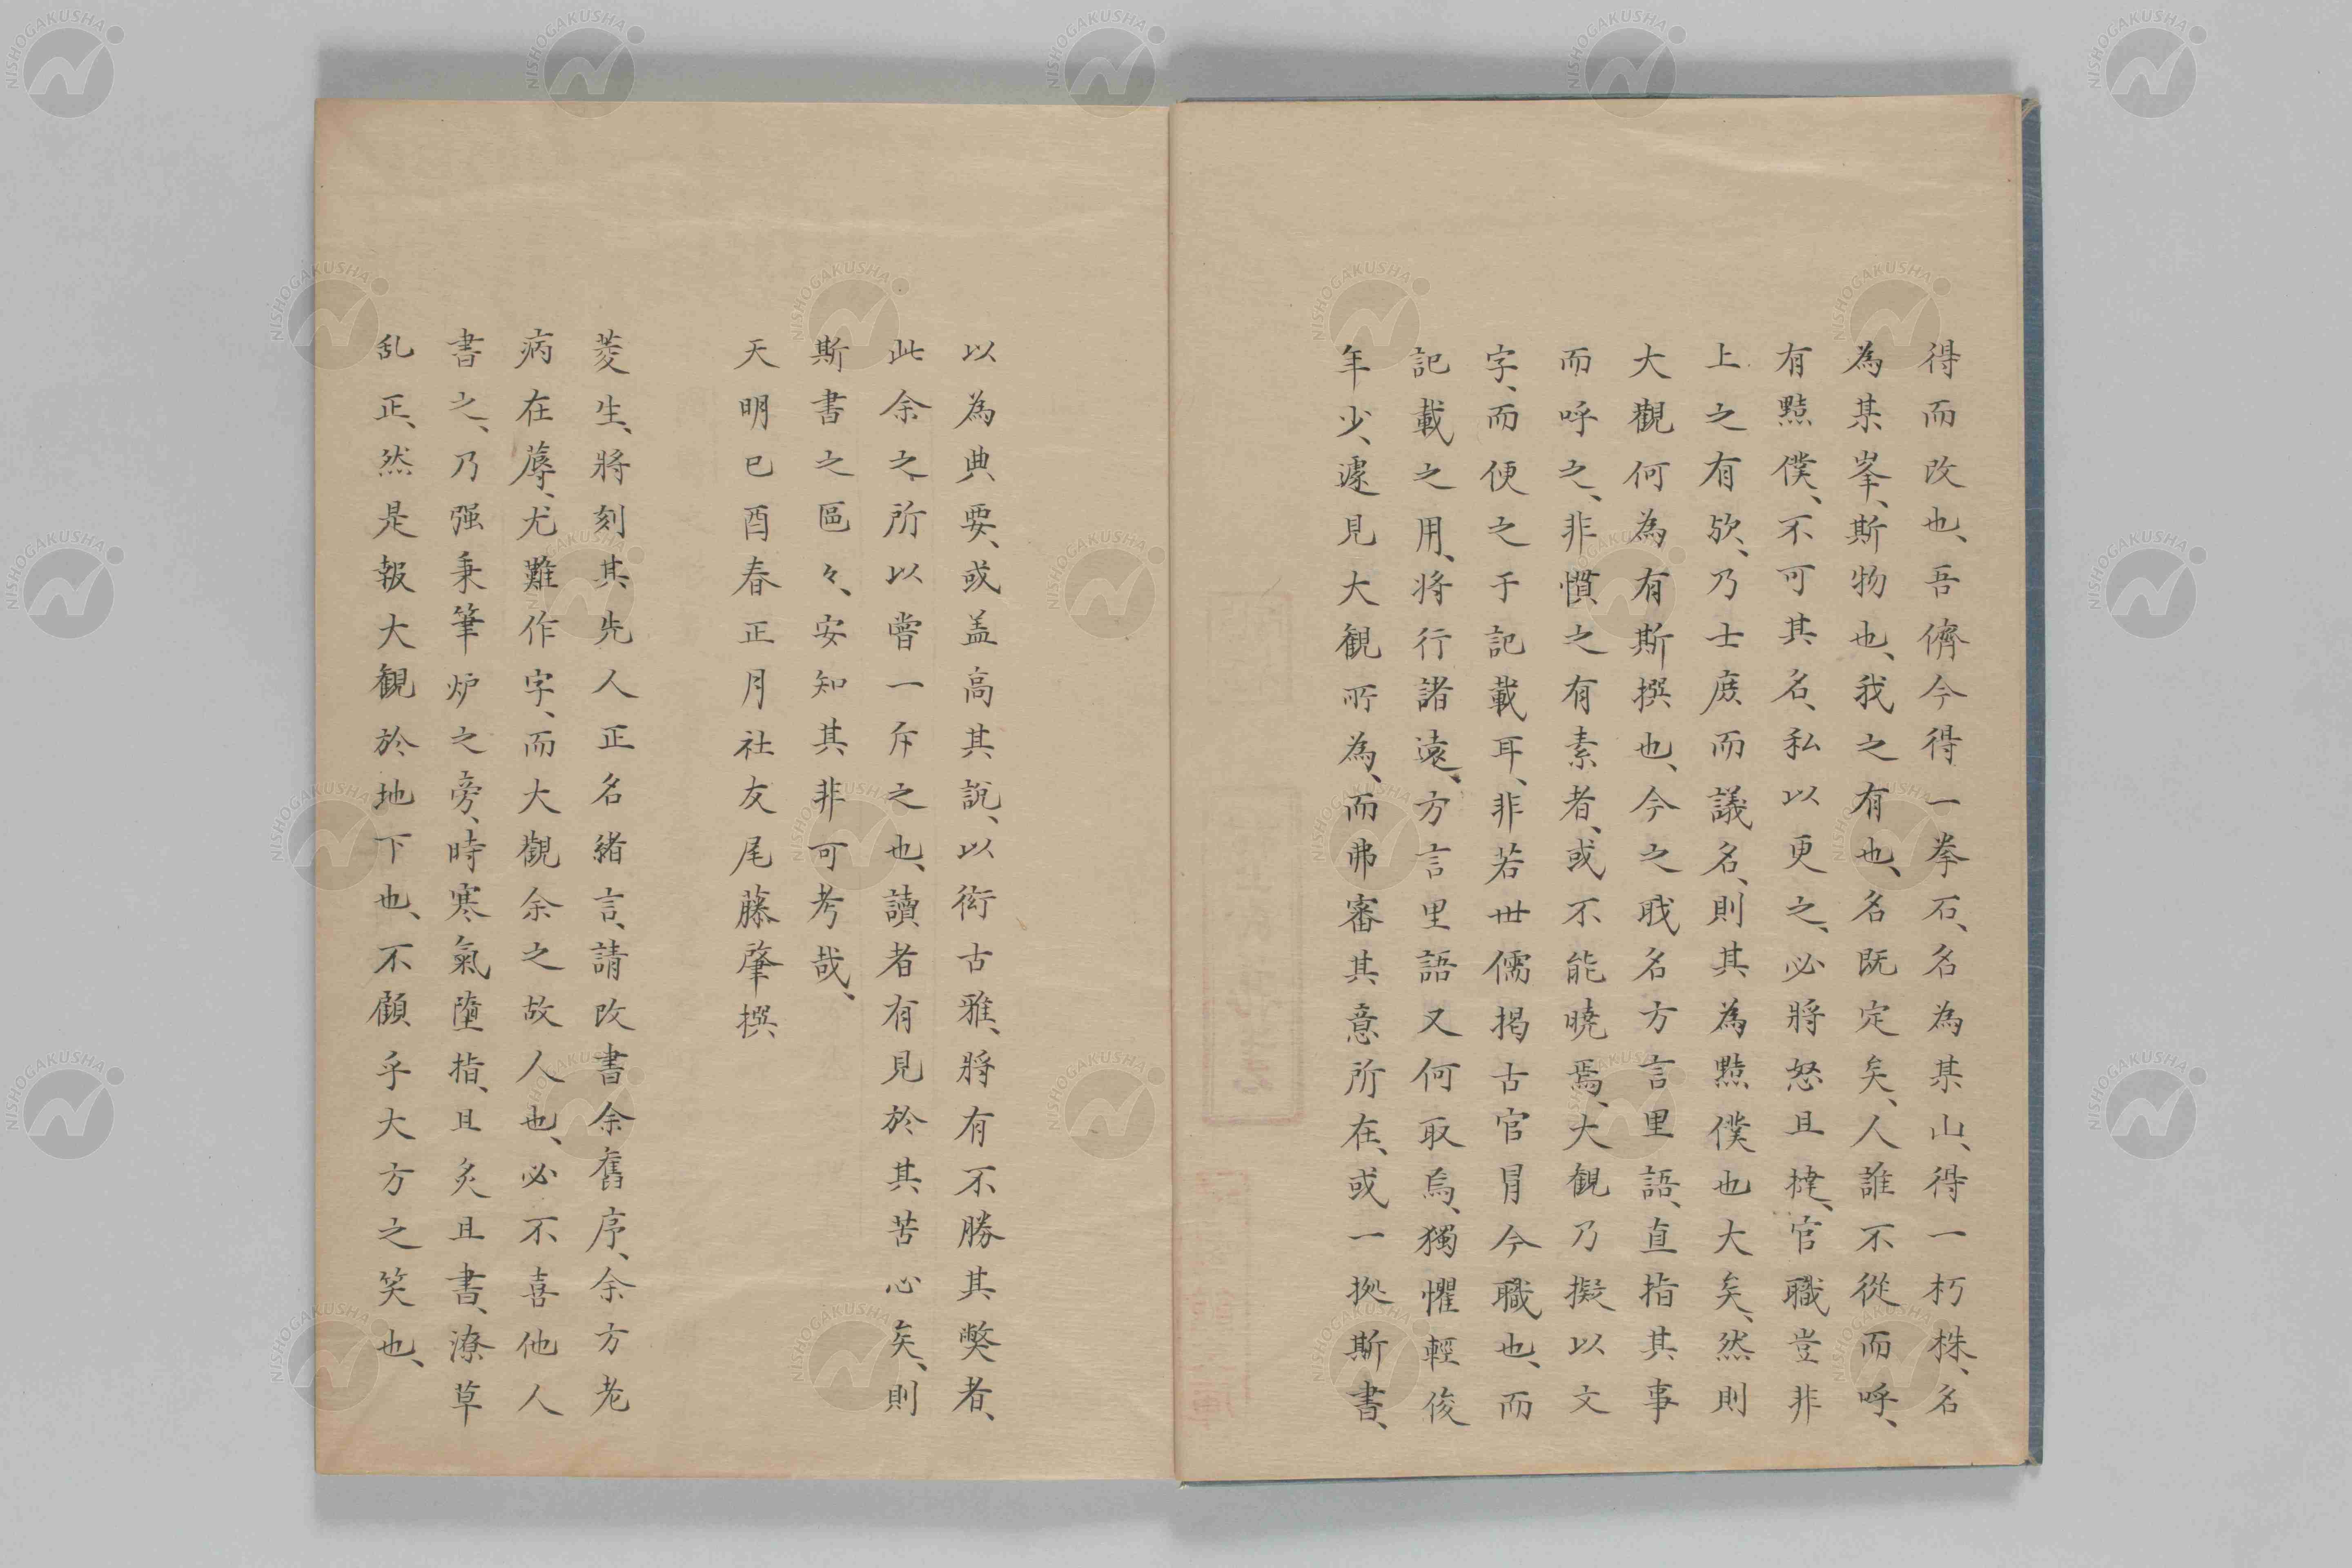 得而改也、吾儕今得一拳石、名為某山、得一朽株、名
為某峯、斯物也、我之有也、名既定矣、人誰不從而呼、
有點僕、不可其名、私以更之、必將怒且撻、官職豈非
上之有欤、乃士庶而議名、則其為點僕也大矣、然則
大觀何為有斯撰也、今之戝名方言里語、直指其事
而呼之、非慣之有素者、或不能曉焉、大観乃擬以文
字、而便之于記載耳、非若世儒掲古官冐今職也、而
記載之用、将行諸遠、方言里語又何取焉、獨懼輕俊
年少、遽見大観所為、而弗審其意所在、或一拠斯書、
以為典要、或盖高其説、以衒古雅、將有不勝其獘者、
此余之所以嘗一斥之也、讀者有見於其苦心矣、則
斯書之區々、安知其非可考哉、
天明己酉春正月社友尾藤肇撰
菱生、將刻其先人正名緒言、請改書余舊序、余方老
病在蓐、尤難作字、而大觀余之故人也、必不喜他人
書之、乃强秉筆炉之旁、時寒氣墮指、且炙且書、潦草
乱正、然是報大観於地下也、不顧乎大方之笑也、
NISHOGAKUSHA